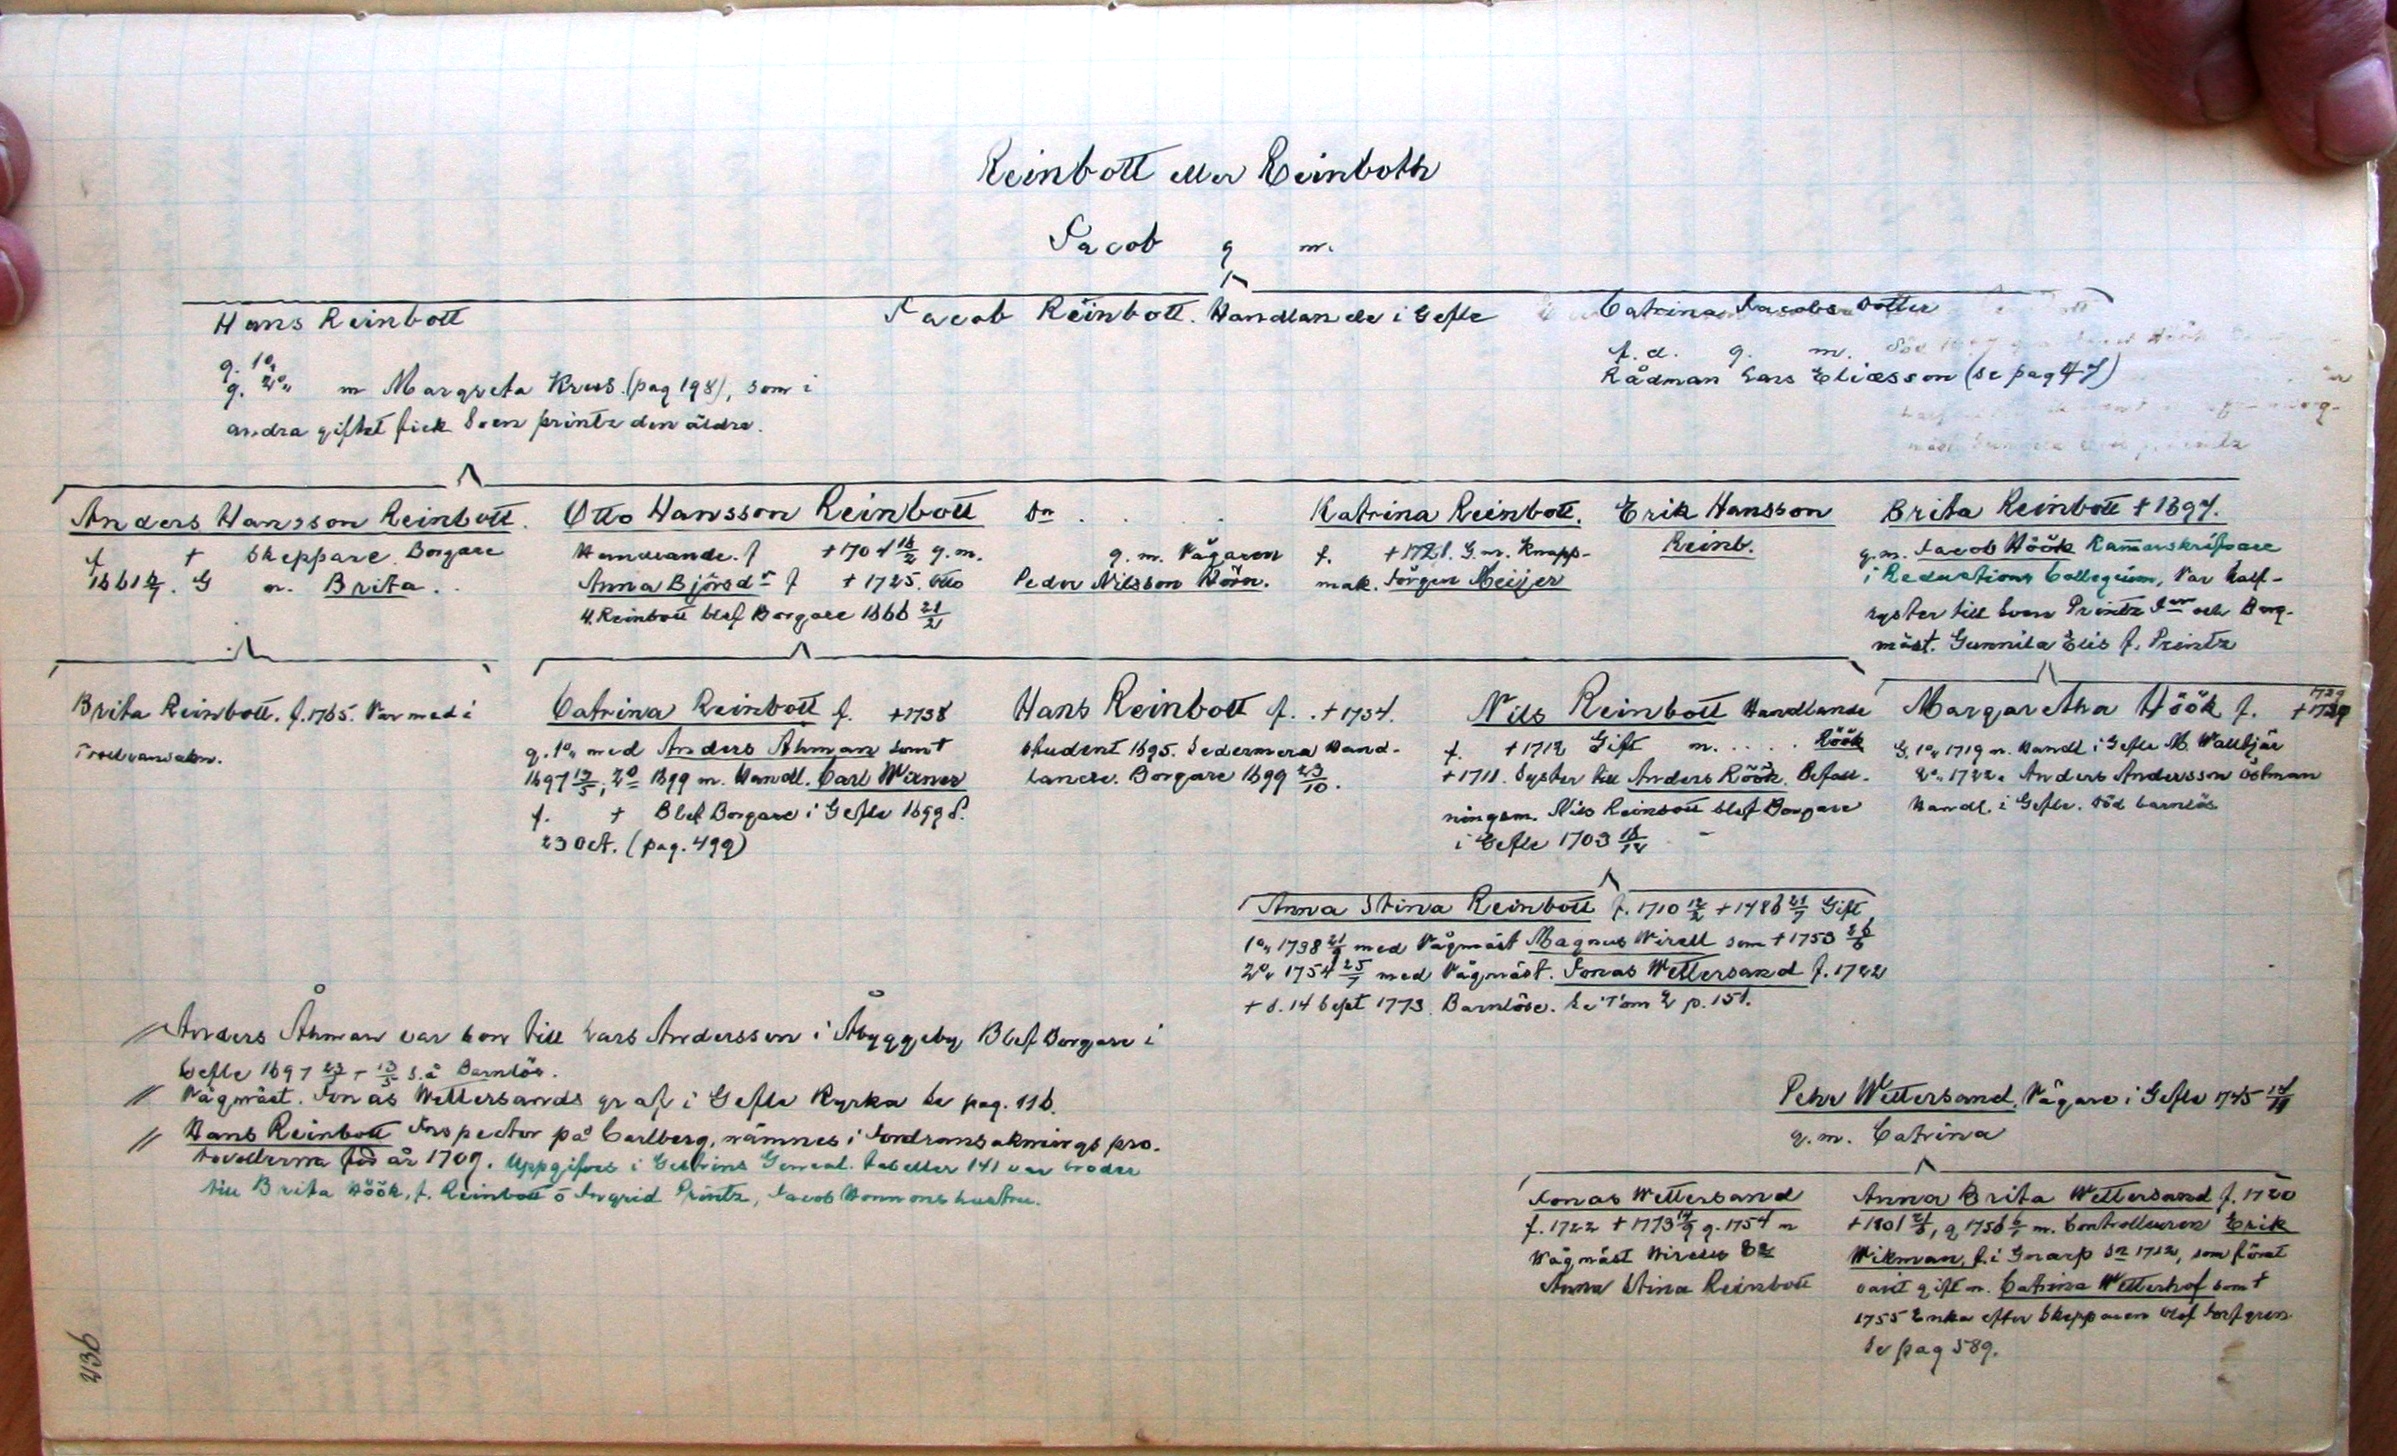 Reinbott eller Reinboth
Jacob g m.
Hans Reinbott
g. 1o„
g. 2o„ m Margreta Krus. (pag 198), som i
andra giftet fick Sven printz den äldre.
Jacob Reinbott. Handlande i Gefle
Catrina Jacobs Dotter
f. d. g. m.
Rådman Lars Eliasson (se pag 47)
Anders Hansson Reinbott.
f + Skeppare Borgare
1661 2/7. G m. Brita. .
Otto Hansson Reinbott
Handlande. f +1704 16/2 g.m.
Anna Bjösdr f + 1725. Otto
H. Reinbott blef Borgare 1666 21/2
Dr . . . .
g. m. Vågaren
Peder Nilsson Hörn.
Katrina Reinbott.
f. +1721. G.m. Knapp-
mak. Jörgen Meijer
Erik Hansson
Reinb.
Brita Reinbott + 1697.
g.m. Jacob Höök Kammarskrifvare
i Reductions Collegium, Var half-
syster till Sven Printz Jun och Borg-
mäst. Gunnila Elis f. Printz
Brita Reinbott. f. 1765. Var med i
Trollransakn.
Catrina Reinbott f. +1738
g. 1o„ med Anders Åhman som +
1697 13/5, 2o 1699 m. Handl. Carl Wixner
f. + Blef Borgare i Gefle 1699 d.
23 Oct. (pag. 499)
Hans Reinbott f. . +1734.
student 1695. Sedermera Hand-
lande. Borgare 1699 23/10.
Nils Reinbott Handlande
f. +1712 Gift m. . . . . Röök
+1711. Syster till Anders Röök. Befall-
ningsm. Nils Reinbott blef Borgare
i Gefle 1703 16/12
Margaretha Höök f. 1729
G. 1o„ 1719 m. Handl i Gefle M. Wallbjär
2o„ 1722. Anders Andersson Östman
Handl. i Gefle. Död barnlös
Anna Stina Reinbott f. 1710 12/2 +1786 21/7 Gift
1o„ 1738 21/9 med Vågmäst Magnus Wirell som +1753 26/6
2o„ 1754 25/7 med Vågmäst. Jonas Wettersand f. 1722
+ d. 14 Sept 1773. Barnlöse. Se Tom 2 p. 151.
// Anders Åhman var son till Lars Andersson i Åbyggeby Blef Borgare i
Gefle 1697 + 13/5 s.å Barnlös.
// Vågmäst. Jonas Wettersands graf i Gefle Kyrka Se pag. 116.
// Hans Reinbott Inspector på Carlberg, nämnes i
för år 1709. Uppgifves i Geneal. tabeller 141 var broder
till Brita Höök, f. Reinbott o Ingrid Printz, Jacob hustru.
Pehr Wettersand, Vågare i Gefle 1745
g. m. Catrina
Jonas Wettersand
f. 1722 + 1773 14/9 g. 1754 m
Vågmäst Wirells
Anna Stina Reinbott
Anna Brita Wettersand f. 1720
+1801 21/5, g 1756 6/7 m. Controlleuren Erik
Wikman, f. i Gnarp 1712, som förut
varit gift m. Catrina Wetterhof som +
1755 Enka efter Skepparen Olof
Se pag 589.
936